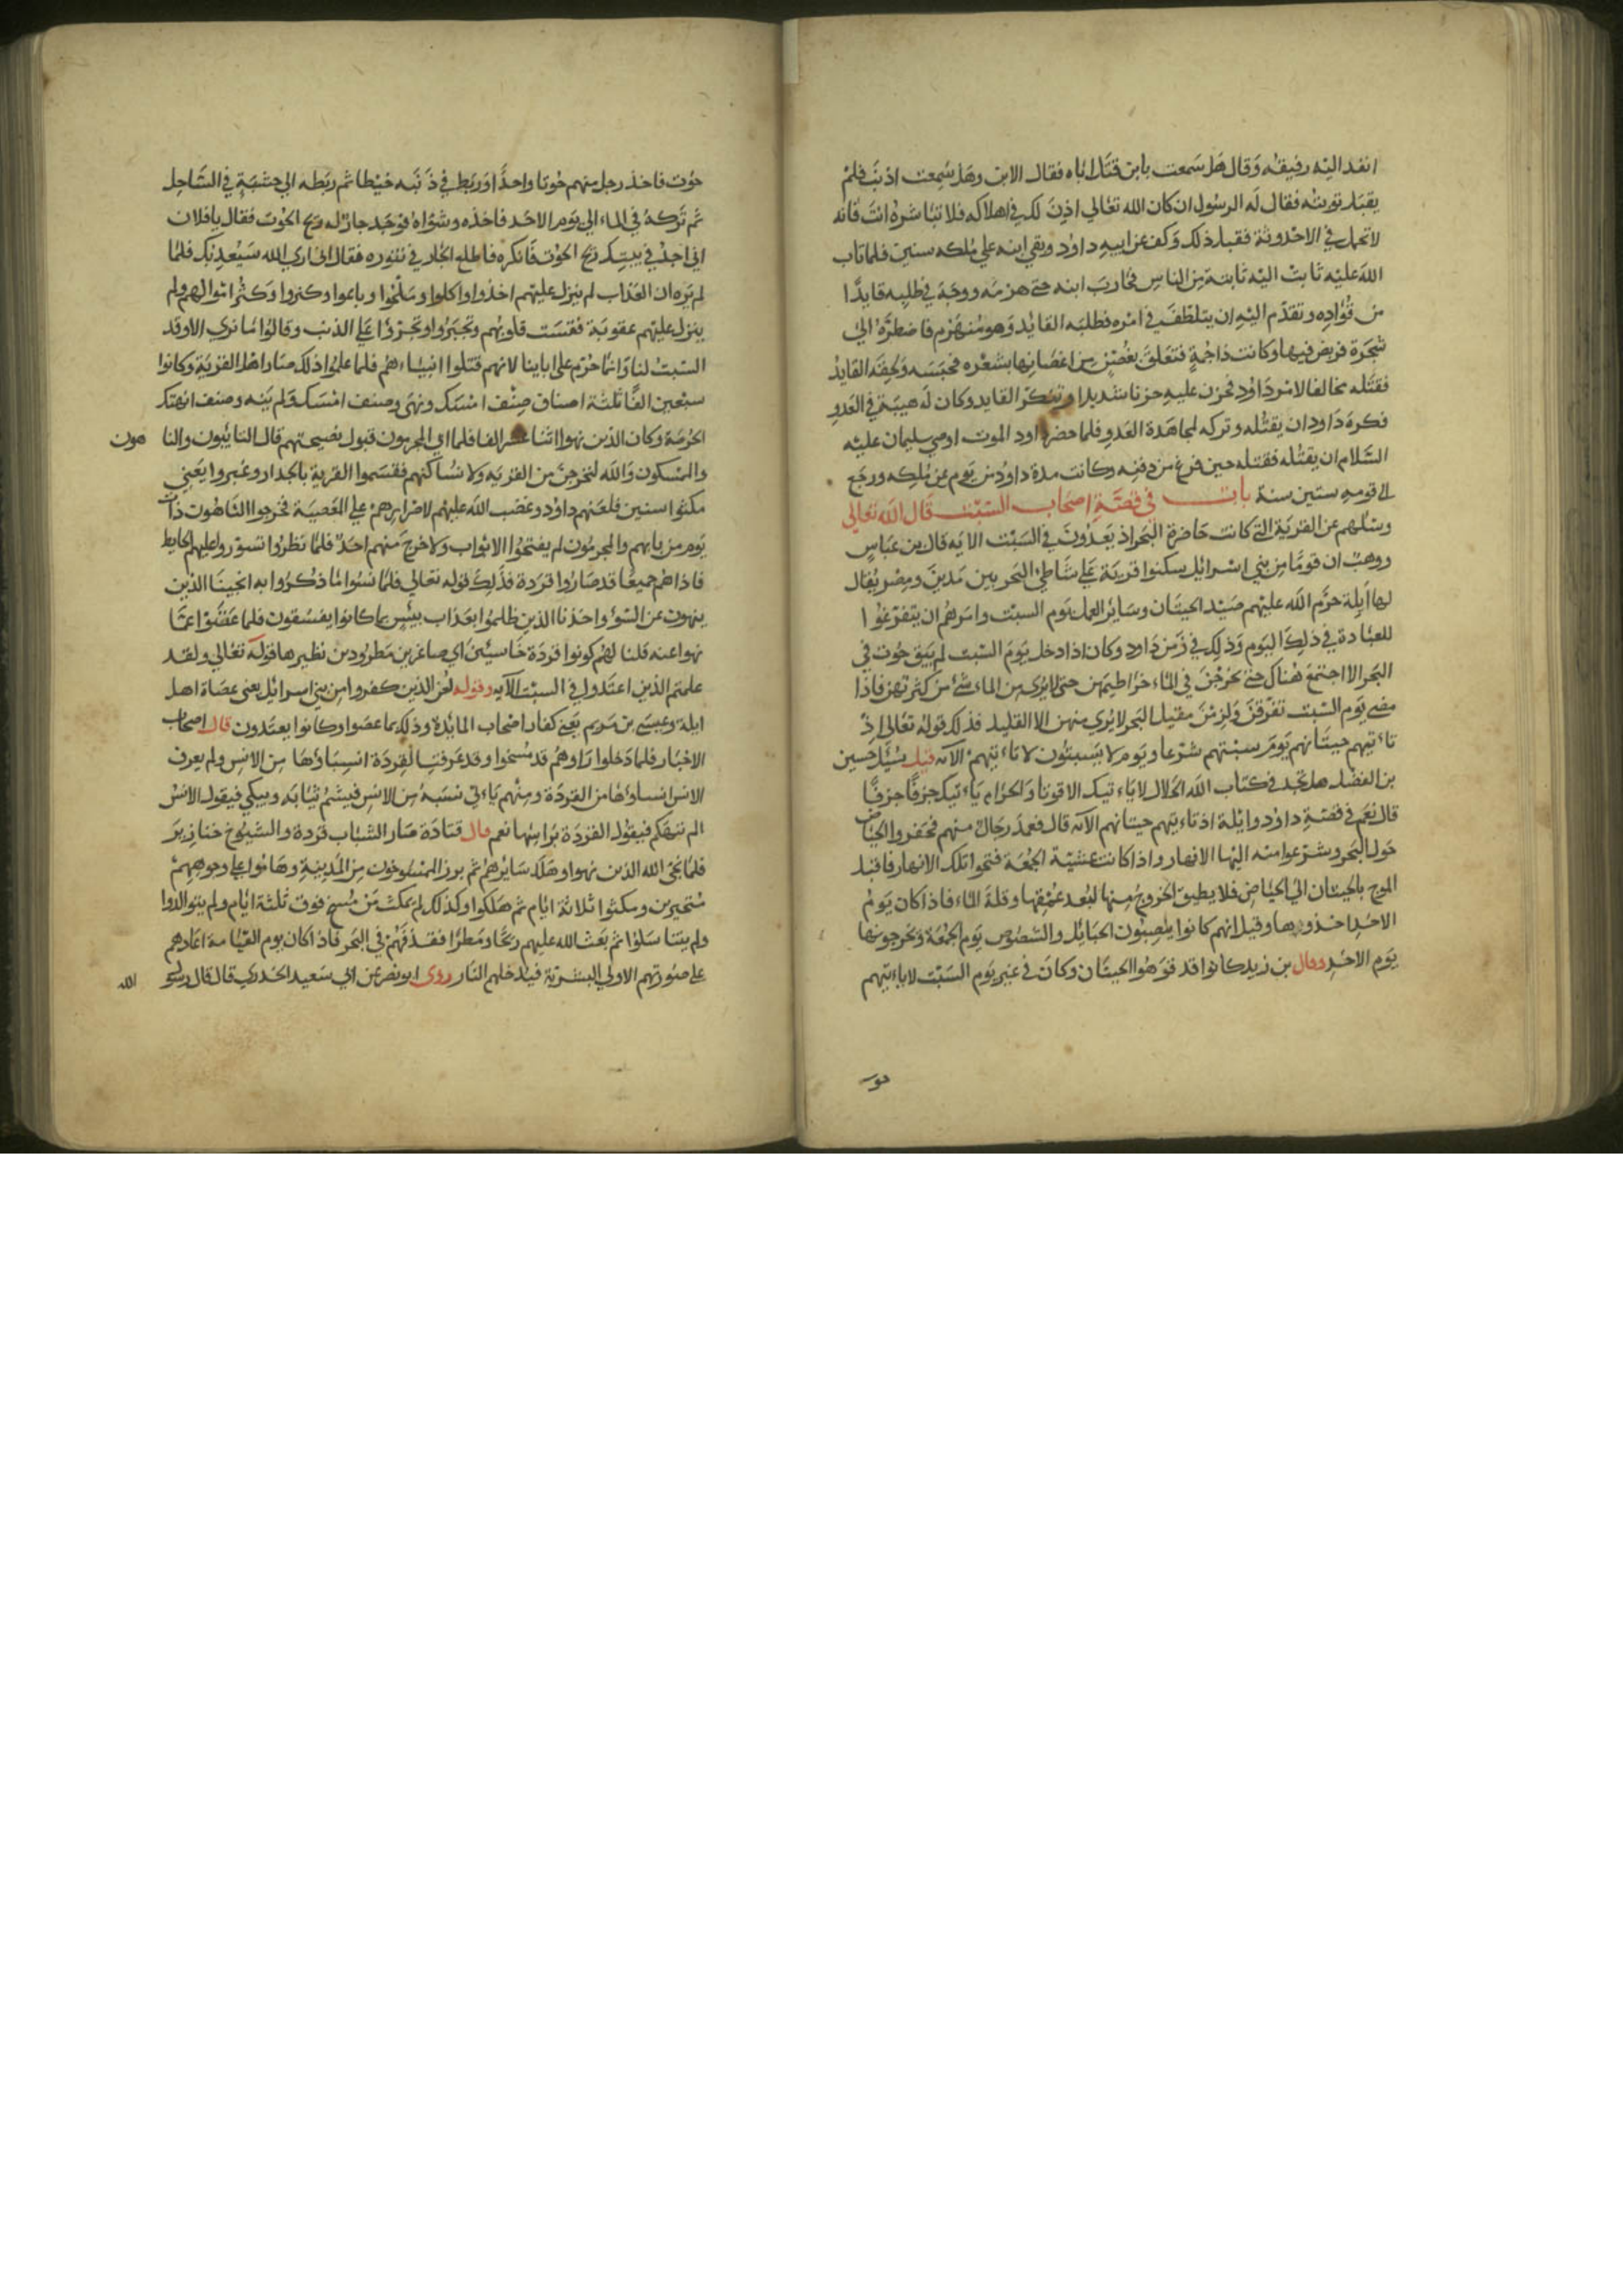 انفذ اليه رفيقه وقال هل سمعت بابن قتل اباه فقال الابن وهل سمعت اذنب فلم
يقبل توبته فقال له الرسول ان كان الله تعالي اذن لك في اهلاكه فلا تباشره انت فانه
لا تحمل في الاحدوثة فقبل ذلك وكف عن ابيه داود وبقي ابنه علي ملكه سنين فلما تاب
الله عليه ثابت اليه ثابتة من الناس فحارب ابنه حتي هزمه ووجه في طلبه قايدا
من قواده وتقدم اليه ان يتلطف في امره فطلبه القايد وهو منهزم فاضطره الي
شجرة فربض فيها وكانت ذا جمة فتعلق بغصن من اغصانها بشعره فحبسه ولحقه القايد
فقتله مخالفا لامر داود فحزن عليه حزنا شديدا وتنكر القايد وكان له هيبة في العدو
فكره داود ان يقتله وتركه لمجاهدة العدو فلما حضر داود الموت اوصي سليمان عليه
السلام ان يقتله فقتله حين فرغ من دفنه وكانت مدة داود من يوم عن ملكه ورجع
الي قومه ستين سنة باب في قصة اصحاب السبت قال الله تعالي
وسئلهم عن القرية التي كانت حاضرة البحر اذ يعدون في السبت الايه قال بن عباس
ووهب ان قوما من بني اسرائل سكنوا قرية علي شاطئ البحر بين مدين ومصر يقال
لها ايلة حرم الله عليهم صيد الحيتان وساير العمل يوم السبت وامرهم ان يتفرغوا
للعبادة في ذلك اليوم وذلك في زمن داود وكان اذا دخل يوم السبت لم يبق حوت في
البحر الا اجتمع هناك حتي يخرجن في الماء خراطيمهن حتي لا يري من الماء شئ من كثرتهن فاذا
مضي يوم السبت تفرقن ولزمن مقيل البحر لا يري منهن الا القليل فذلك قوله تعالي اذ
تاءتيهم حيتانهم يوم سبتهم شرعا ويوم لا يسبتون لا تاءتيهم الآيه قيل سئيل حسين
بن الفضل هل تجد في كتاب الله الحلال لا ياءتيك الا قوتا والحرام ياءتيك جزفا جزفا
قال نعم في قصة داود وايلة اذ تاءتيهم حيتانهم الآيه قال فعمد رجال منهم فحفروا الحياض
حول البحر وشرعوا منه اليها الانهار واذا كانت عشية الجمعة فتحوا تلك الانهار فاقبل
الموج بالحيتان الي الحياض فلا يطيق الخروج منها لبعد عمقها وقلة الماء فاذا كان يوم
الاحد اخذوها وقيل انهم كانوا ينصبون الحبائل والشصوص يوم الجمعة ويخرجونها
يوم الاحد وقال بن زيد كانوا قد قوهوا الحيتان وكان في غير يوم السبت لا ياءتيهم
حوت
حوت فاخذ رجل منهم حوتا واحدا وربط في ذنبه خيطا ثم ربطه الي خشبة في الساحل
ثم تركه في الماء الي يوم الاحد فاخذه وشواه فوجد جار له ريح الحوت فقال يا فلان
اني اجد في بيتك ريح الحوت فانكره فاطلع الجار في تنوره فقال اني اري الله سيعذبك فلما
لم يره ان العذاب لم ينزل عليهم اخذوا واكلوا وملحوا وباعوا وكنزوا وكثر اموالهم ولم
ينزل عليهم عقوبة فقست قلوبهم وتجبروا وتجرؤا علي الذنب وقالوا ما نري الا وقد
السبت لنا وانما حرم علي اباينا لانهم قتلوا انبياءهم فلما علموا ذلك صار اهل القرية وكانوا
سبعين الفا ثلثة اصناف صنف امسك ونهي وصنف امسك ولم ينه وصنف انهتك
الحرمة وكان الذين نهوا اثنا عشر الفا فلما ابي المجرمون قبول نصيحتهم قال التائبون والنا
هون
والمسكون والله لنخرجن من القرية ولا نساكنهم فقسموا القرية بالجدار وغبروا يعني
مكثوا سنين فلعنهم داود وغضب الله عليهم لاصرارهم علي المعصية فخرجوا الناهون ذات
يوم من بابهم والمجرمون لم يفتحوا الابواب ولا خرج منهم احد فلما نظروا تسوروا عليهم الحايط
فاذا هم جميعا قد صاروا قردة فذلك قوله تعالي فلما نسوا ما ذكروا به انجينا الذين
ينهون عن السوء واخذنا الذين ظلموا بعذاب بيئس بما كانوا يفسقون فلما عتوا عما
نهوا عنه قلنا لهم كونوا قردة خاسئين اي صاغرين مطرودين نظيرها قوله تعالي ولقد
علمتم الذين اعتدوا في السبت الآيه وقوله لعن الذين كفروا من بني اسرائل يعني عصاة اهل
ايلة وعيسي بن مريم يعني كفار اصحاب المايدة وذلك بما عصوا وكانوا يعتدون قال اصحاب
الاخبار فلما دخلوا راوهم قد مسخوا وقد عرفت القردة انسباؤها من الانس ولم يعرف
الانس انساوءها من القردة ومنهم ياءتي نسبه من الانس فيشم ثيابه ويبكي فيقول الانس
الم ننهكم فيقول القردة براسها نعم قال قتادة صار الشباب قردة والشيوخ خنازير
فلما نجي الله الذين نهوا وهلك سايرهم ثم برز الممسوخون من المدينة وهاموا علي وجوههم
متحيرين ومكثوا ثلاثة ايام ثم هلكوا وكذلك لم يمكث من مسخ فوق ثلثة ايام ولم يتوالدوا
ولم يتناسلوا ثم بعث الله عليهم ريحا ومطرا فقذفهم في البحر فاذا كان يوم القيامة اعادهم
علي صورتهم الاولي البشرية فيدخلهم النار روي ابو نضر عن ابي سعيد الخدري قال قال رسول
الله